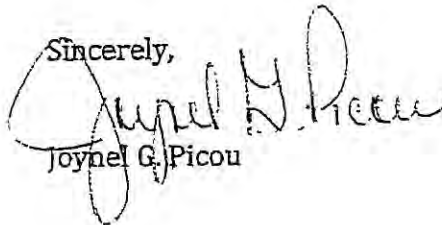 Sincerely,
Joynel G. Picou
Joynel G. Picou